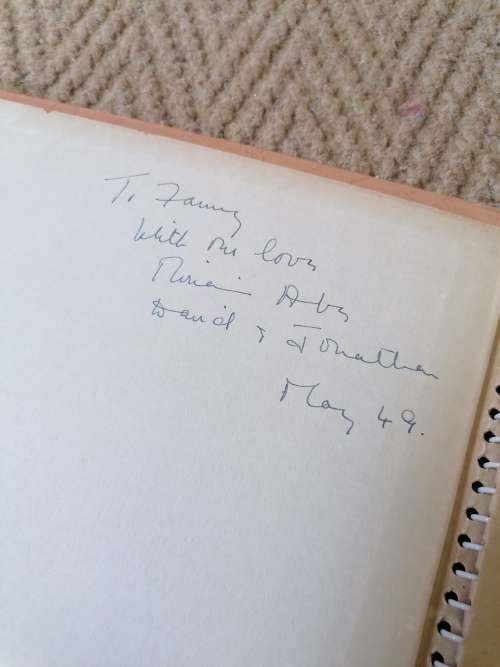 To Fanny
With our love
Miriam Abs
David & Jonathan
May 49.